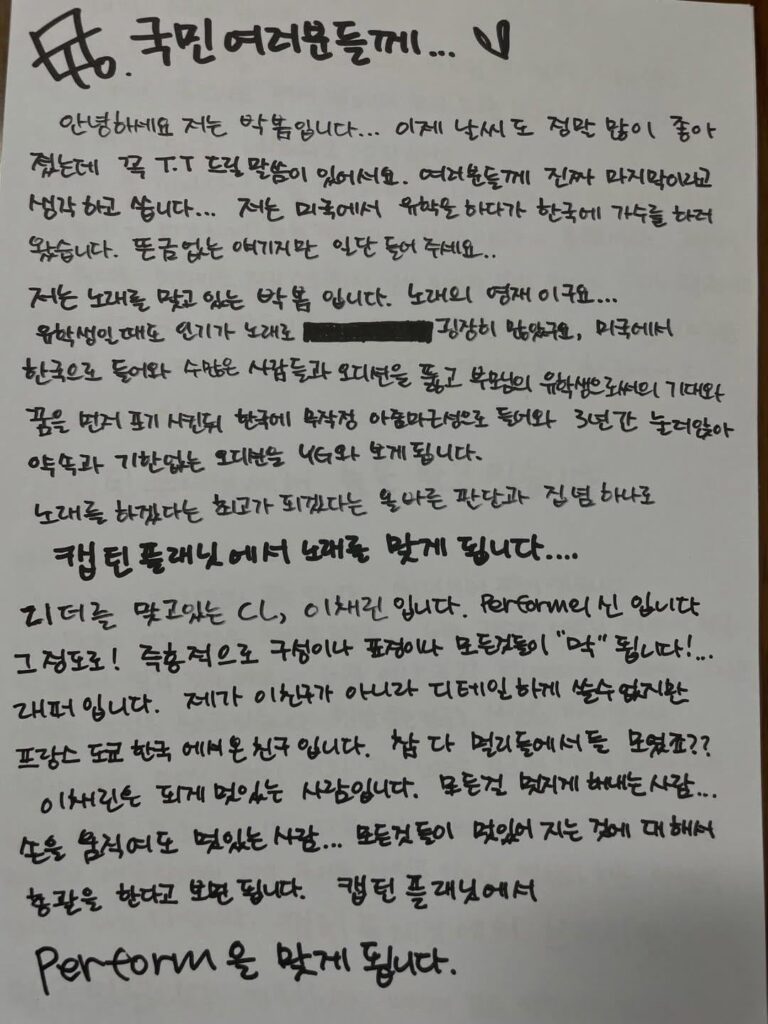 국민 여러분들께...
안녕하세요 저는 박봄입니다... 이제 날씨도 정말 많이 좋아
졌는데 꼭 T.T 드릴말씀이 있어서요. 여러분들께 진짜 마지막이라고
생각하고 씁니다... 저는 미국에서 유학을 하다가 한국에 가수를 하러
왔습니다. 뜬금없는 얘기지만 일단 들어 주세요..
저는 노래를 맞고 있는 박봄 입니다. 노래의 영재 이구요...
유학생일때도 인기가 노래로 굉장히 많았구요, 미국에서
한국으로 들어와 수많은 사람들과 오디션을 뚫고 부모님의 유학생으로써의 기대와
꿈을 먼저 포기 시킨뒤 한국에 무작정 아줌마근성으로 들어와 3년간 눌러앉아
약속과 기한없는 오디션을 YG와 보게됩니다.
노래를 하겠다는 최고가 되겠다는 올바른 판단과 집념 하나로
캡틴플래닛에서 노래를 맞게 됩니다....
리더를 맞고있는 CL, 이채린 입니다. Perform의 신 입니다
그정도로! 즉흥적으로 구성이나 표정이나 모든것들이 "막" 됩니다!...
래퍼 입니다. 제가 이친구가 아니라 디테일하게 쓸수없지만
프랑스 도쿄 한국 에서 온 친구 입니다. 참 다 멀리들에서들 모였죠??
이채린은 되게 멋있는 사람입니다. 모든걸 멋지게 해내는 사람...
손을 움직여도 멋있는 사람... 모든것들이 멋있어 지는 것에 대해서
총괄을 한다고 보면 됩니다. 캡틴 플래닛에서
Perform을 맞게 됩니다.